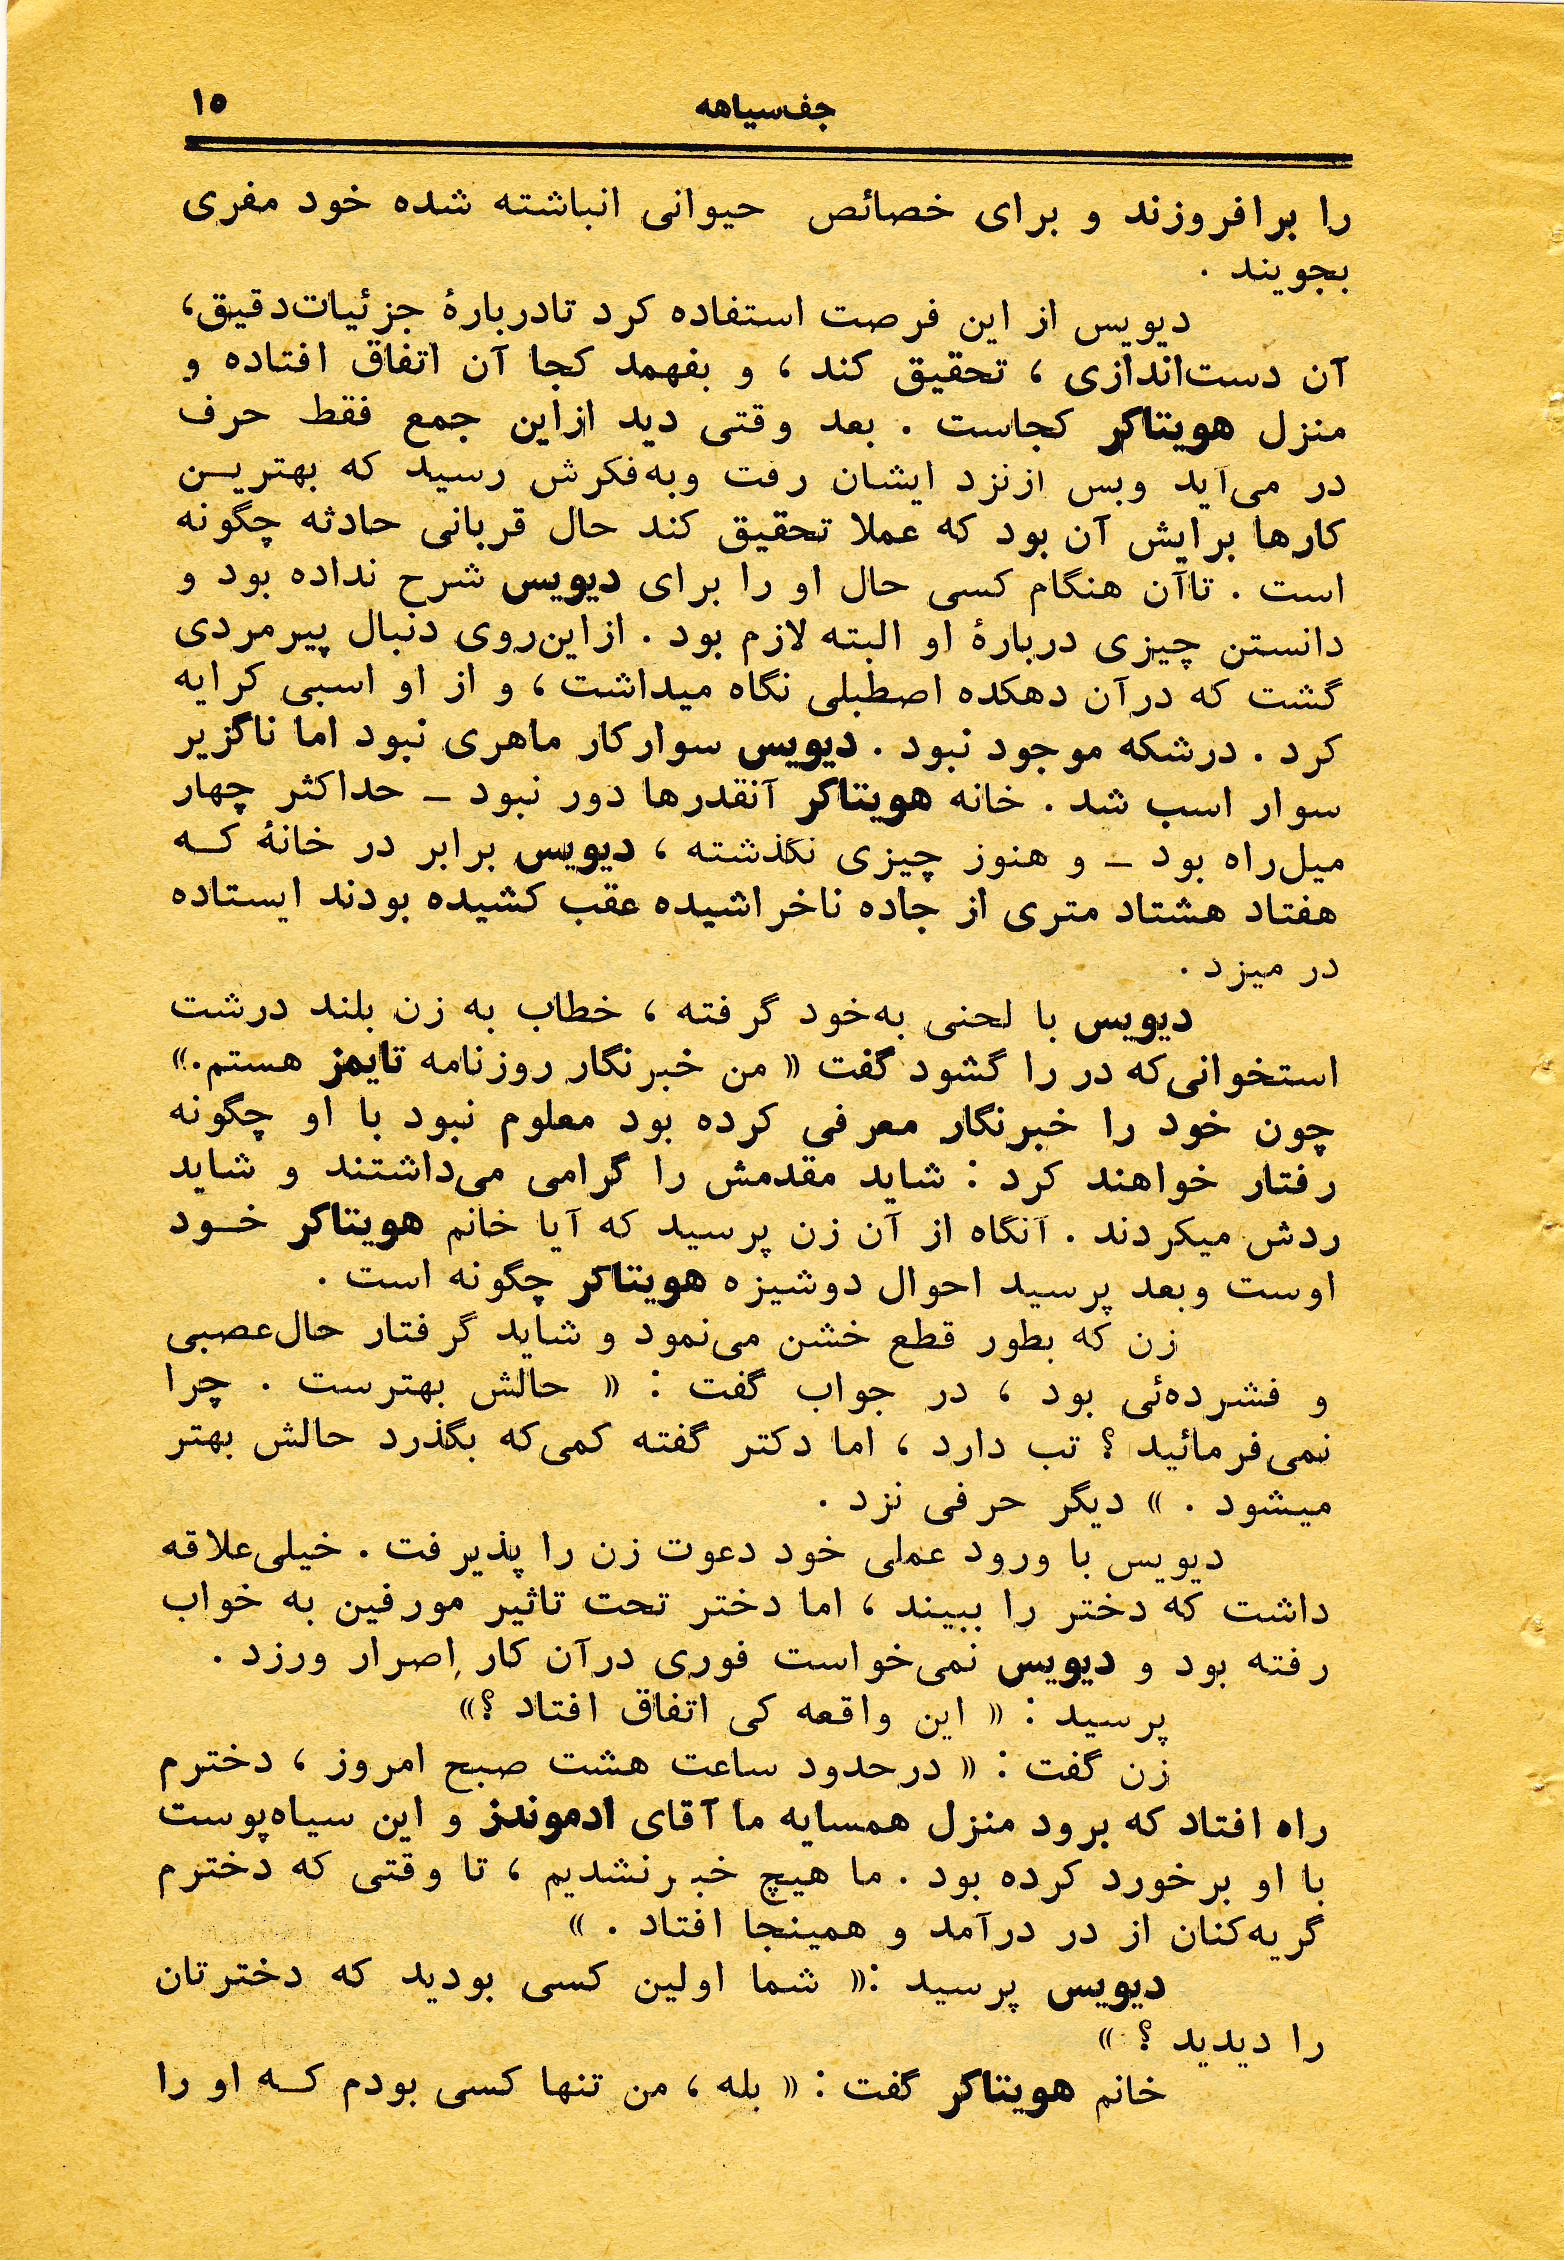 جف‌سیاهه ۱۵
را برافروزند و برای خصائص حیوانی انباشته شده خود مفری
بجویند .
دیویس از این فرصت استفاده کرد تادربارهٔ جزئیات‌دقیق،
آن دست‌اندازی ، تحقیق کند ، و بفهمد کجا آن اتفاق افتاده و
منزل هویتاکر کجاست . بعد وقتی دید ازاین جمع فقط حرف
در می‌آید وبس ازنزد ایشان رفت وبه‌فکرش رسید که بهتریـن
کارها برایش آن بود که عملا تحقیق کند حال قربانی حادثه چگونه
است . تاآن هنگام کسی حال او را برای دیویس شرح نداده بود و
دانستن چیزی دربارهٔ او البته لازم بود . ازاین‌روی دنبال پیرمردی
گشت که درآن دهکده اصطبلی نگاه میداشت ، و از او اسبی کرایه
کرد . درشکه موجود نبود . دیویس سوارکار ماهری نبود اما ناگزیر
سوار اسب شد . خانه هویتاکر آنقدرها دور نبود ـ حداکثر چهار
میل‌راه بود ـ و هنوز چیزی نگذشته ، دیویس برابر در خانهٔ کـه
هفتاد هشتاد متری از جاده ناخراشیده عقب کشیده بودند ایستاده
در میزد .
دیویس با لحنی به‌خود گرفته ، خطاب به زن بلند درشت
استخوانی‌که در را گشود گفت « من خبرنگار روزنامه تایمز هستم.»
چون خود را خبرنگار معرفی کرده بود معلوم نبود با او چگونه
رفتار خواهند کرد : شاید مقدمش را گرامی می‌داشتند و شاید
ردش میکردند . آنگاه از آن زن پرسید که آیا خانم هویتاکر خـود
اوست وبعد پرسید احوال دوشیزه هویتاکر چگونه است .
زن که بطور قطع خشن می‌نمود و شاید گرفتار حال‌عصبی
و فشرده‌ئی بود ، در جواب گفت : « حالش بهترست . چرا
نمی‌فرمائید ؟ تب دارد ، اما دکتر گفته کمی‌که بگذرد حالش بهتر
میشود . » دیگر حرفی نزد .
دیویس با ورود عملی خود دعوت زن را پذیرفت . خیلی‌علاقه
داشت که دختر را ببیند ، اما دختر تحت تاثیر مورفین به خواب
رفته بود و دیویس نمی‌خواست فوری درآن کار اصرار ورزد .
پرسید : « این واقعه کی اتفاق افتاد ؟»
زن گفت : « درحدود ساعت هشت صبح امروز ، دخترم
راه افتاد که برود منزل همسایه ما آقای ادموندز و این سیاه‌پوست
با او برخورد کرده بود . ما هیچ خبرنشدیم ، تا وقتی که دخترم
گریه‌کنان از در درآمد و همینجا افتاد . »
دیویس پرسید :« شما اولین کسی بودید که دخترتان
را دیدید ؟ »
خانم هویتاکر گفت : « بله ، من تنها کسی بودم کـه او را